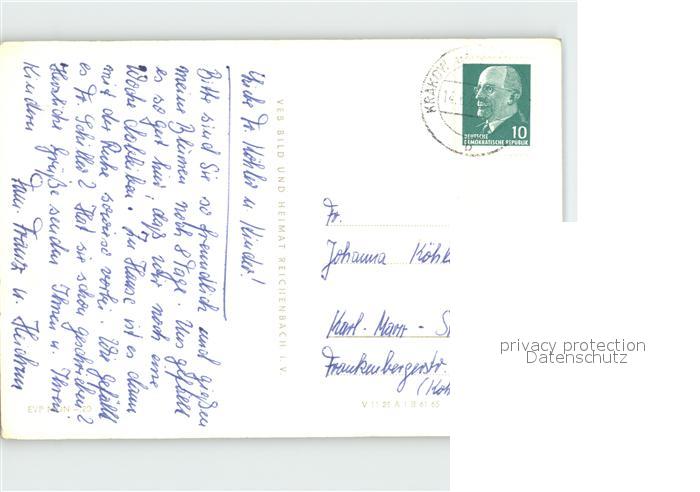 Liebe Fr. Köhler u. Kinder!
Bitte sind Sie so freundlich und gießen
meine Blumen noch 8 Tage. Uns gefällt
es so gut hier, daß wir noch eine
Woche dableiben. Zu Hause ist es dann
mit der Ruhe sowieso vorbei. Wie gefällt
es Fr. Schiller? Hat sie schon geschrieben?
Herzliche Grüße senden Ihnen u. Ihren
Kindern
Fam. Franz u.
VEB BILD UND HEIMAT REICHENBACH I. V.
EVP 20
KRAKOW
14
b
10
DEUTSCHE
DEMOKRATISCHE REPUBLIK
Fr.
Johanna Köhl
Karl-Marx-S
Frankenbergerstr.
V 11 28 A 1 B 61 65
privacy protection
Datenschutz